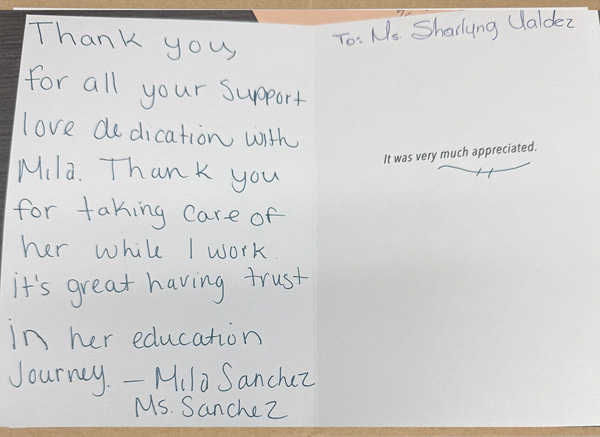 Thank you,
for all your support
love dedication with
Mila. Thank you
for taking care of
her while I work.
it's great having trust
in her education
Journey. – Mila Sanchez
Ms. Sanchez
To: Ms. Sharlyng Valdez
It was very much appreciated.